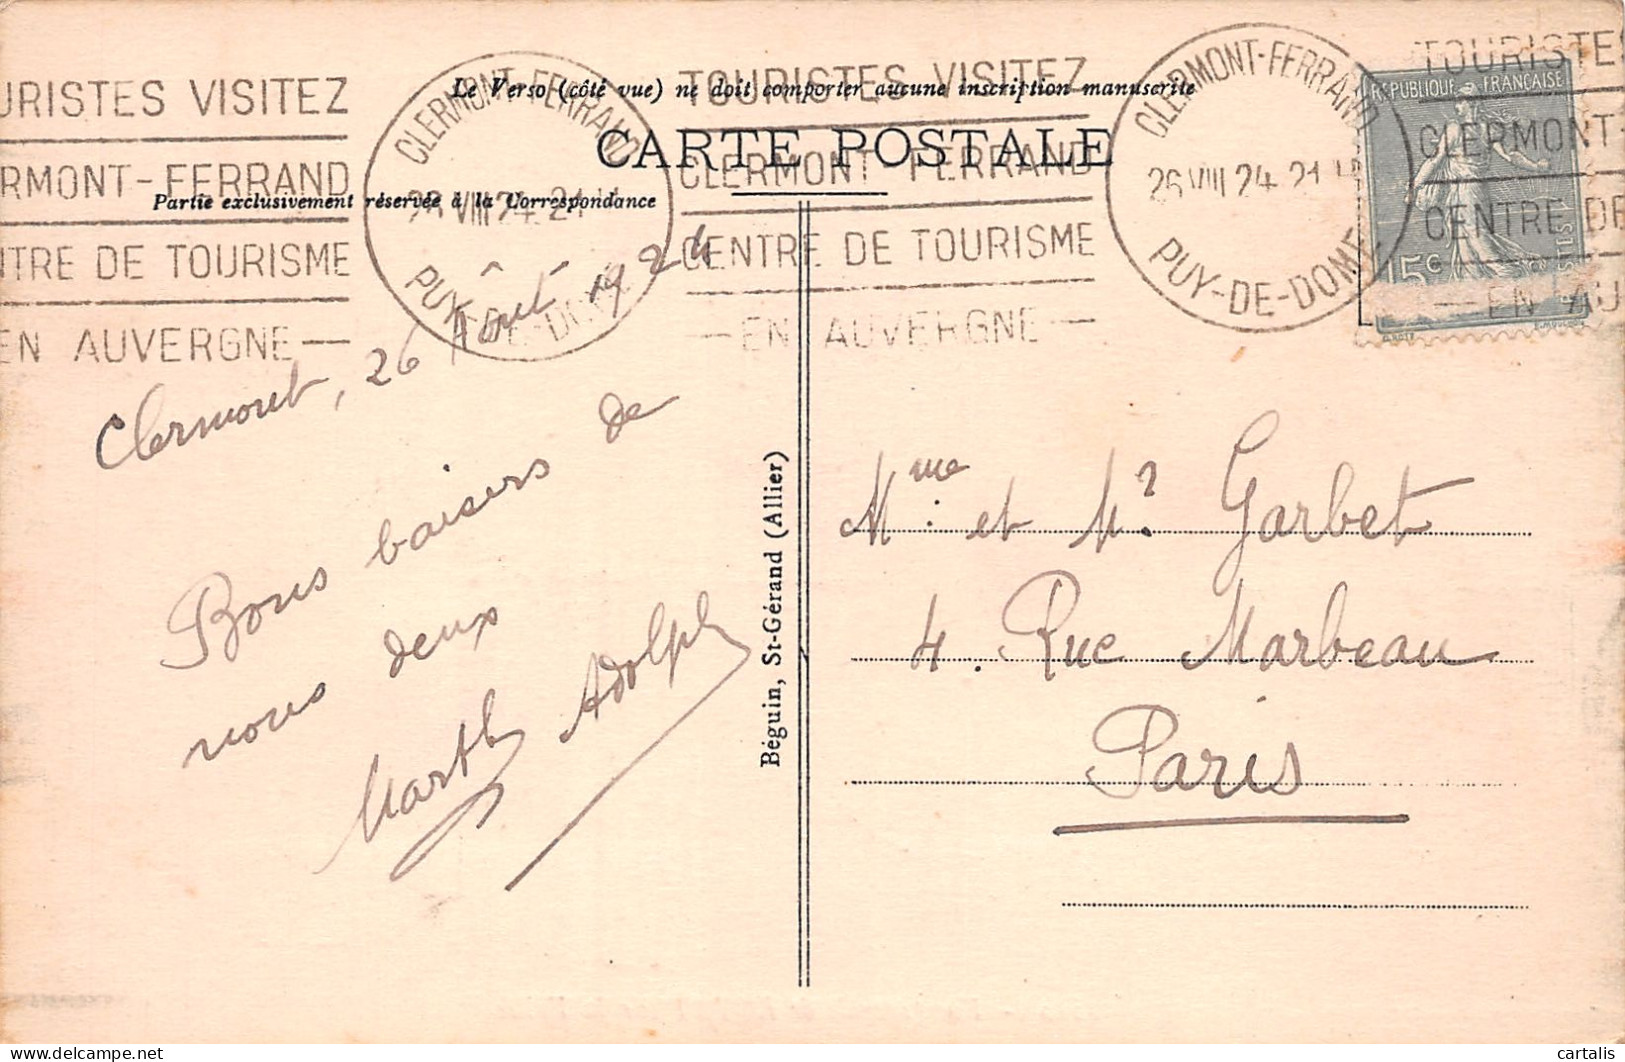 Le Verso (côté vue) ne doit comporter aucune inscription manuscrite
CARTE POSTALE
Partie exclusivement réservée à la Correspondance
URISTES VISITEZ
ERMONT-FERRAND
NTRE DE TOURISME
EN AUVERGNE —
CLERMONT-FERRAND
26 VIII 24 21 H
PUY-DE-DOME
TOURISTES VISITEZ
CLERMONT FERRAND
CENTRE DE TOURISME
— EN AUVERGNE —
CLERMONT-FERRAND
26 VIII 24 21 H
PUY-DE-DOME
TOURISTES
CLERMONT-
CENTRE DE
— EN AU
REPUBLIQUE FRANÇAISE
15c
POSTES
O. ROTY
Clermont, 26 Août 1924
Bons baisers de
nous deux
Marth Adolph
Béguin, St-Gérand (Allier)
Mme et Mr Garbet
4. Rue Marbeau
Paris
cartalis
delcampe.net